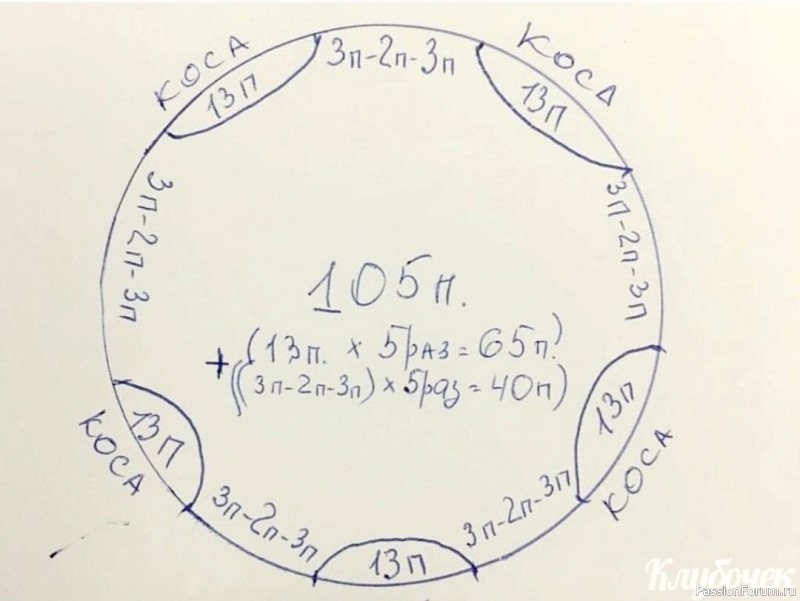 КОСА
13п
3п-2п-3п
КОСА
13п
3п-2п-3п
3п-2п-3п
105п.
(13п. х 5раз=65п.)
+((3п-2п-3п)х5раз=40п)
13п
КОСА
13п
КОСА
3п-2п-3п
3п-2п-3п
13п
Клубочек
PassionForum.ru